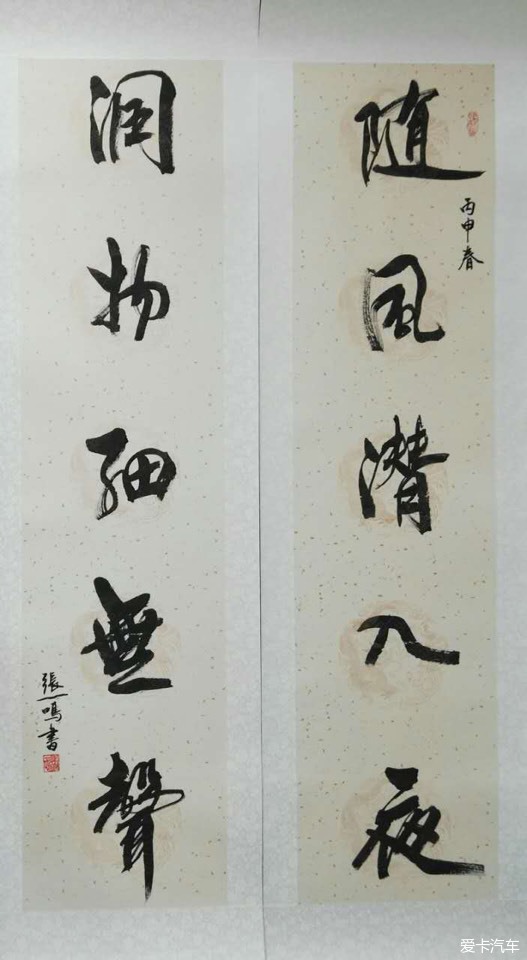 随風潛入夜
丙申春
潤物細無聲
張一鳴書
爱卡汽车